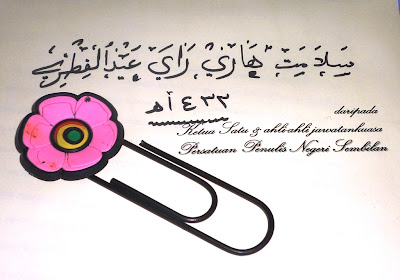 سلامت هاري راي عيدالفطري
١٤٣٣ هـ
daripada
Ketua Satu & ahli-ahli jawatankuasa
Persatuan Penulis Negeri Sembilan